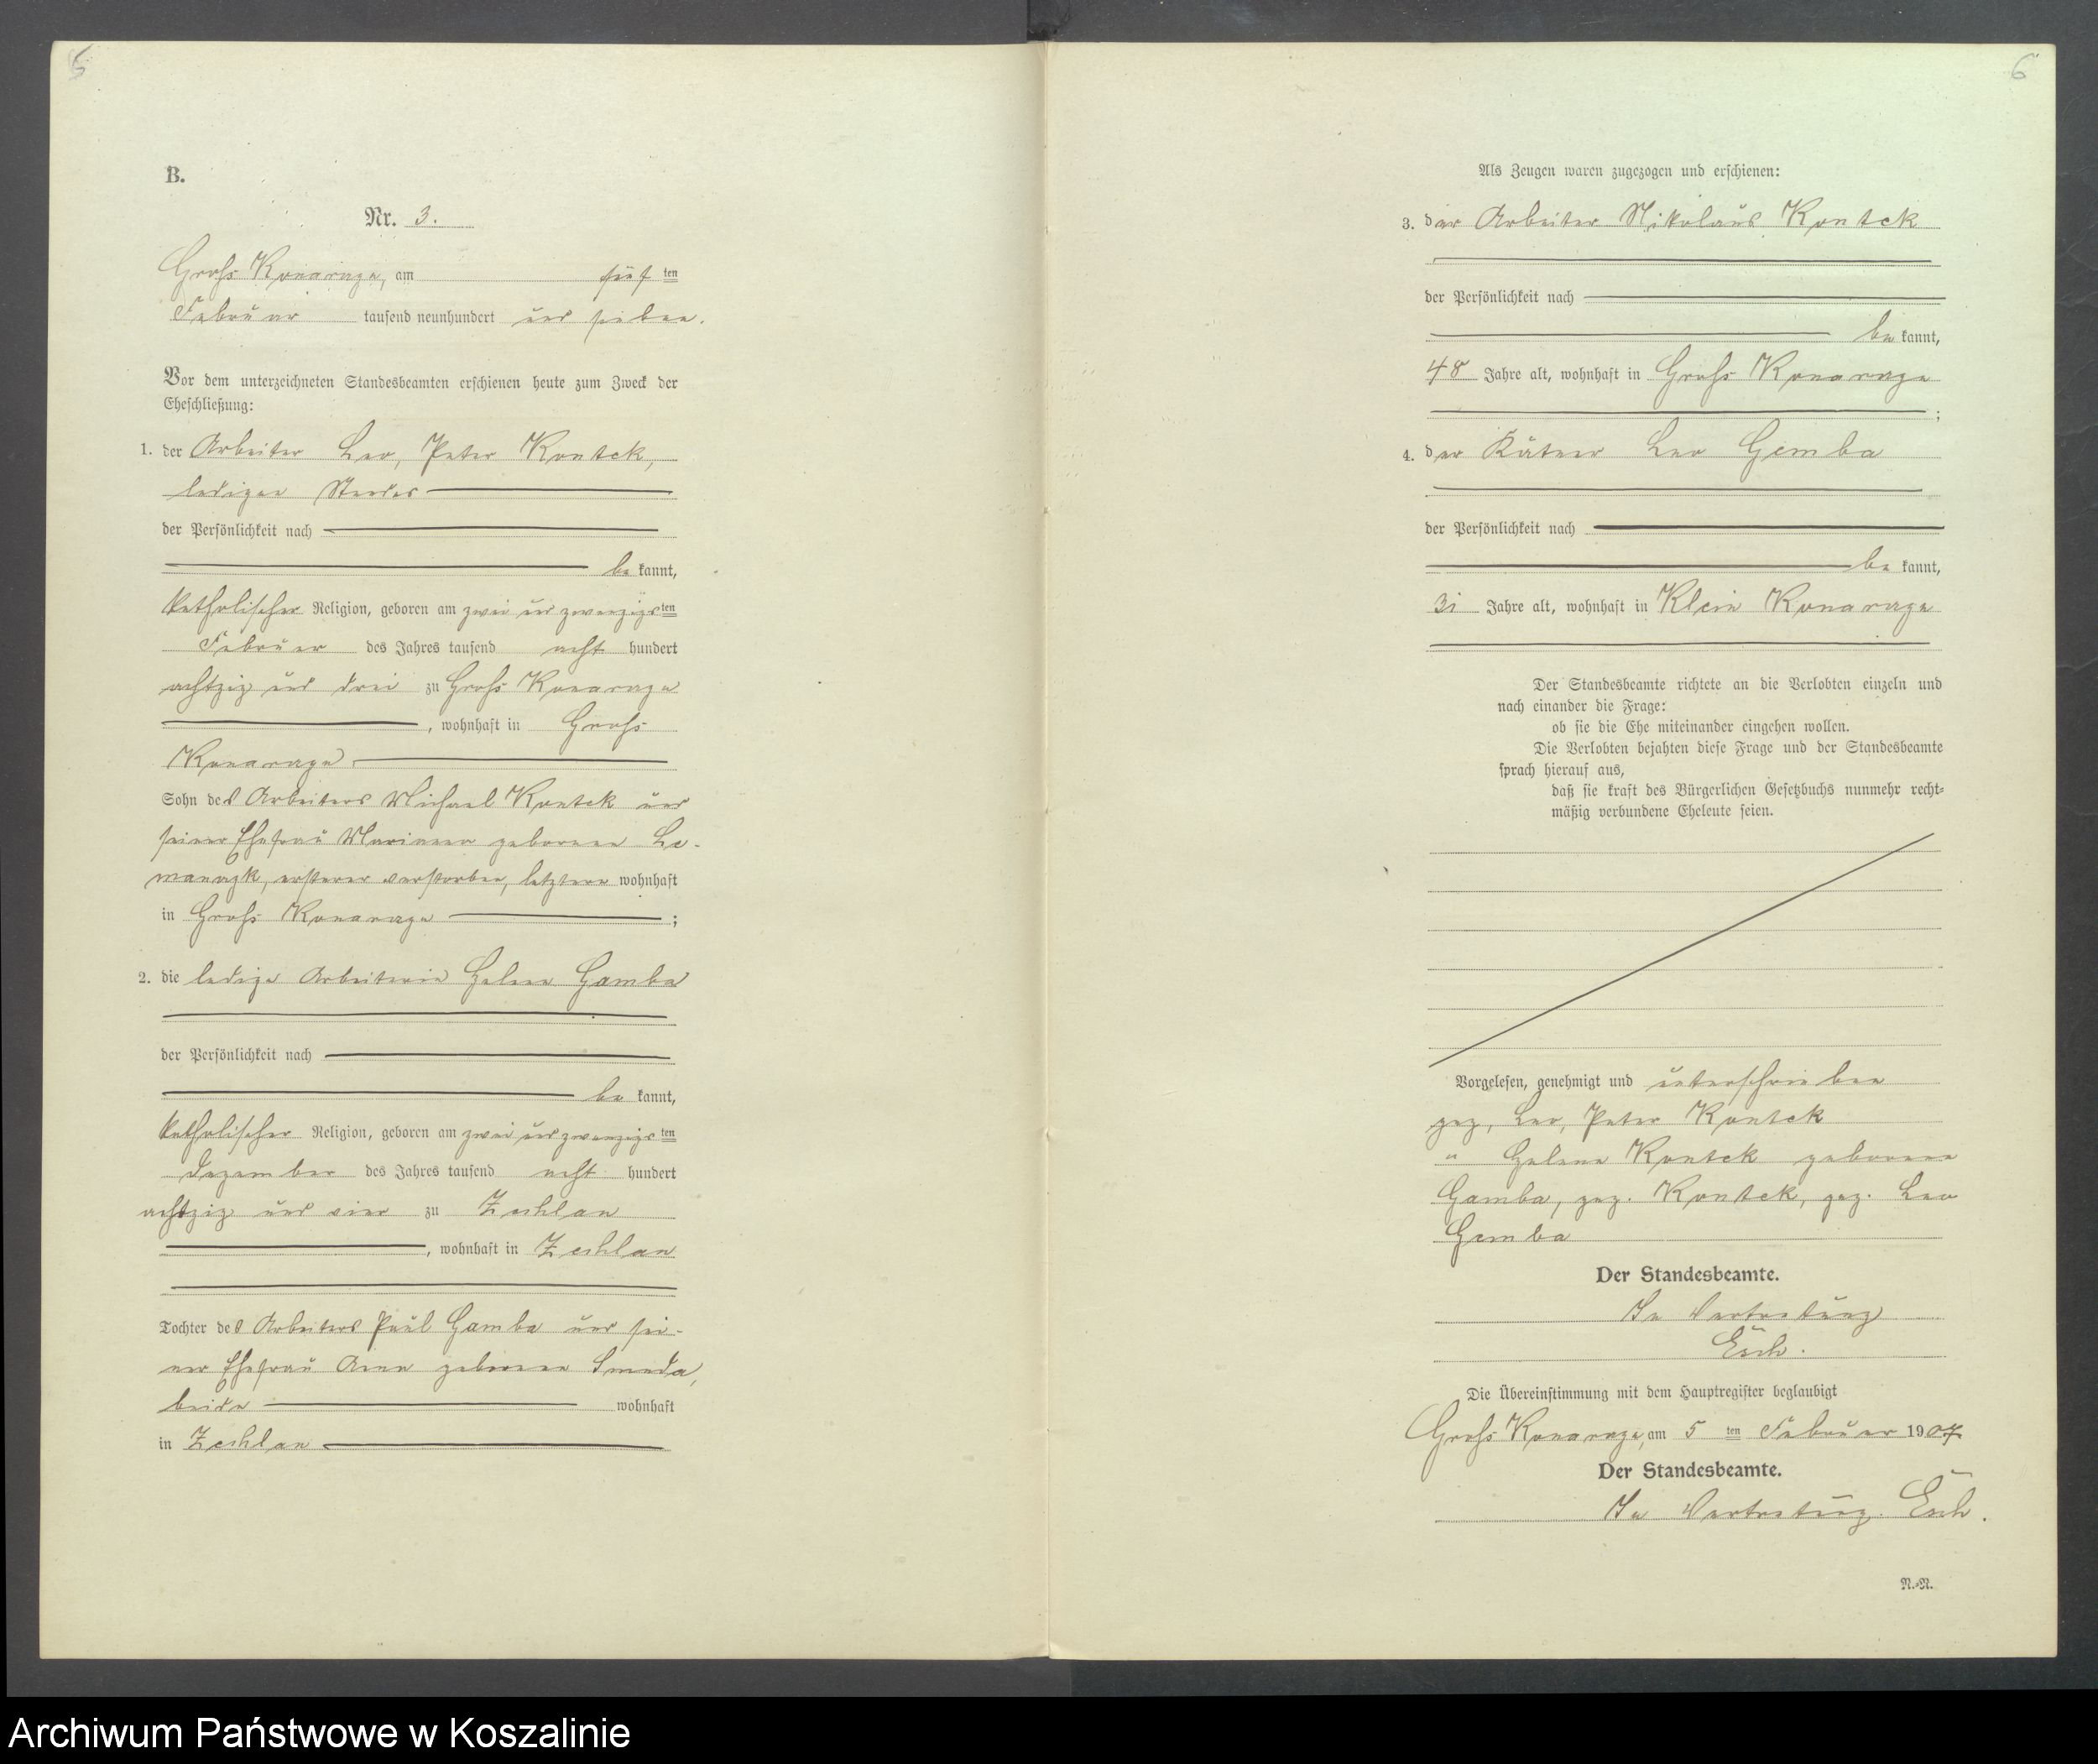 5
B.
Nr. 3.
Gross Konarzyn, am fünften
Februar tausend neunhundert und sieben.
Vor dem unterzeichneten Standesbeamten erschienen heute zum Zweck der
Eheschließung:
1. der Arbeiter Leo, Peter Kontek,
ledigen Standes
der Persönlichkeit nach
be kannt,
katholischer Religion, geboren am zwei und zwanzigsten
Februar des Jahres tausend acht hundert
achtzig und drei zu Gross Konarzyn
, wohnhaft in Gross
Konarzyn
Sohn des Arbeiters Michael Kontek und
seiner Ehefrau Marianna geborenen
ersterer verstorben, letztere wohnhaft
in Gross Konarzyn ;
2. die ledige Arbeiterin Helene Gamba
der Persönlichkeit nach
be kannt,
katholischer Religion, geboren am zwei und zwanzigsten
Dezember des Jahres tausend acht hundert
achtzig und vier zu Zechlau
, wohnhaft in Zechlau
Tochter des Arbeiters Paul Gamba und sei-
ner Ehefrau Anna geborenen
beide wohnhaft
in Zechlau
6
Als Zeugen waren zugezogen und erschienen:
3. der Arbeiter Nikolaus Kontek
der Persönlichkeit nach
be kannt,
48 Jahre alt, wohnhaft in Gross Konarzyn
;
4. der Kätner Leo Gemba
der Persönlichkeit nach
be kannt,
31 Jahre alt, wohnhaft in Klein Konarzyn
Der Standesbeamte richtete an die Verlobten einzeln und
nach einander die Frage:
ob sie die Ehe miteinander eingehen wollen.
Die Verlobten bejahten diese Frage und der Standesbeamte
sprach hierauf aus,
daß sie kraft des Bürgerlichen Gesetzbuchs nunmehr recht-
mäßig verbundene Eheleute seien.
Vorgelesen, genehmigt und unterschrieben
gez, Leo, Peter Kontek
" Helene Kontek geborene
Gamba, gez. Kontek, gez. Leo
Gemba
Der Standesbeamte.
In Vertretung
Esch.
Die Übereinstimmung mit dem Hauptregister beglaubigt
Gross Konarzyn, am 5 ten Februar 1907
Der Standesbeamte.
In Vertretung. Esch.
N.-N.
Archiwum Państwowe w Koszalinie